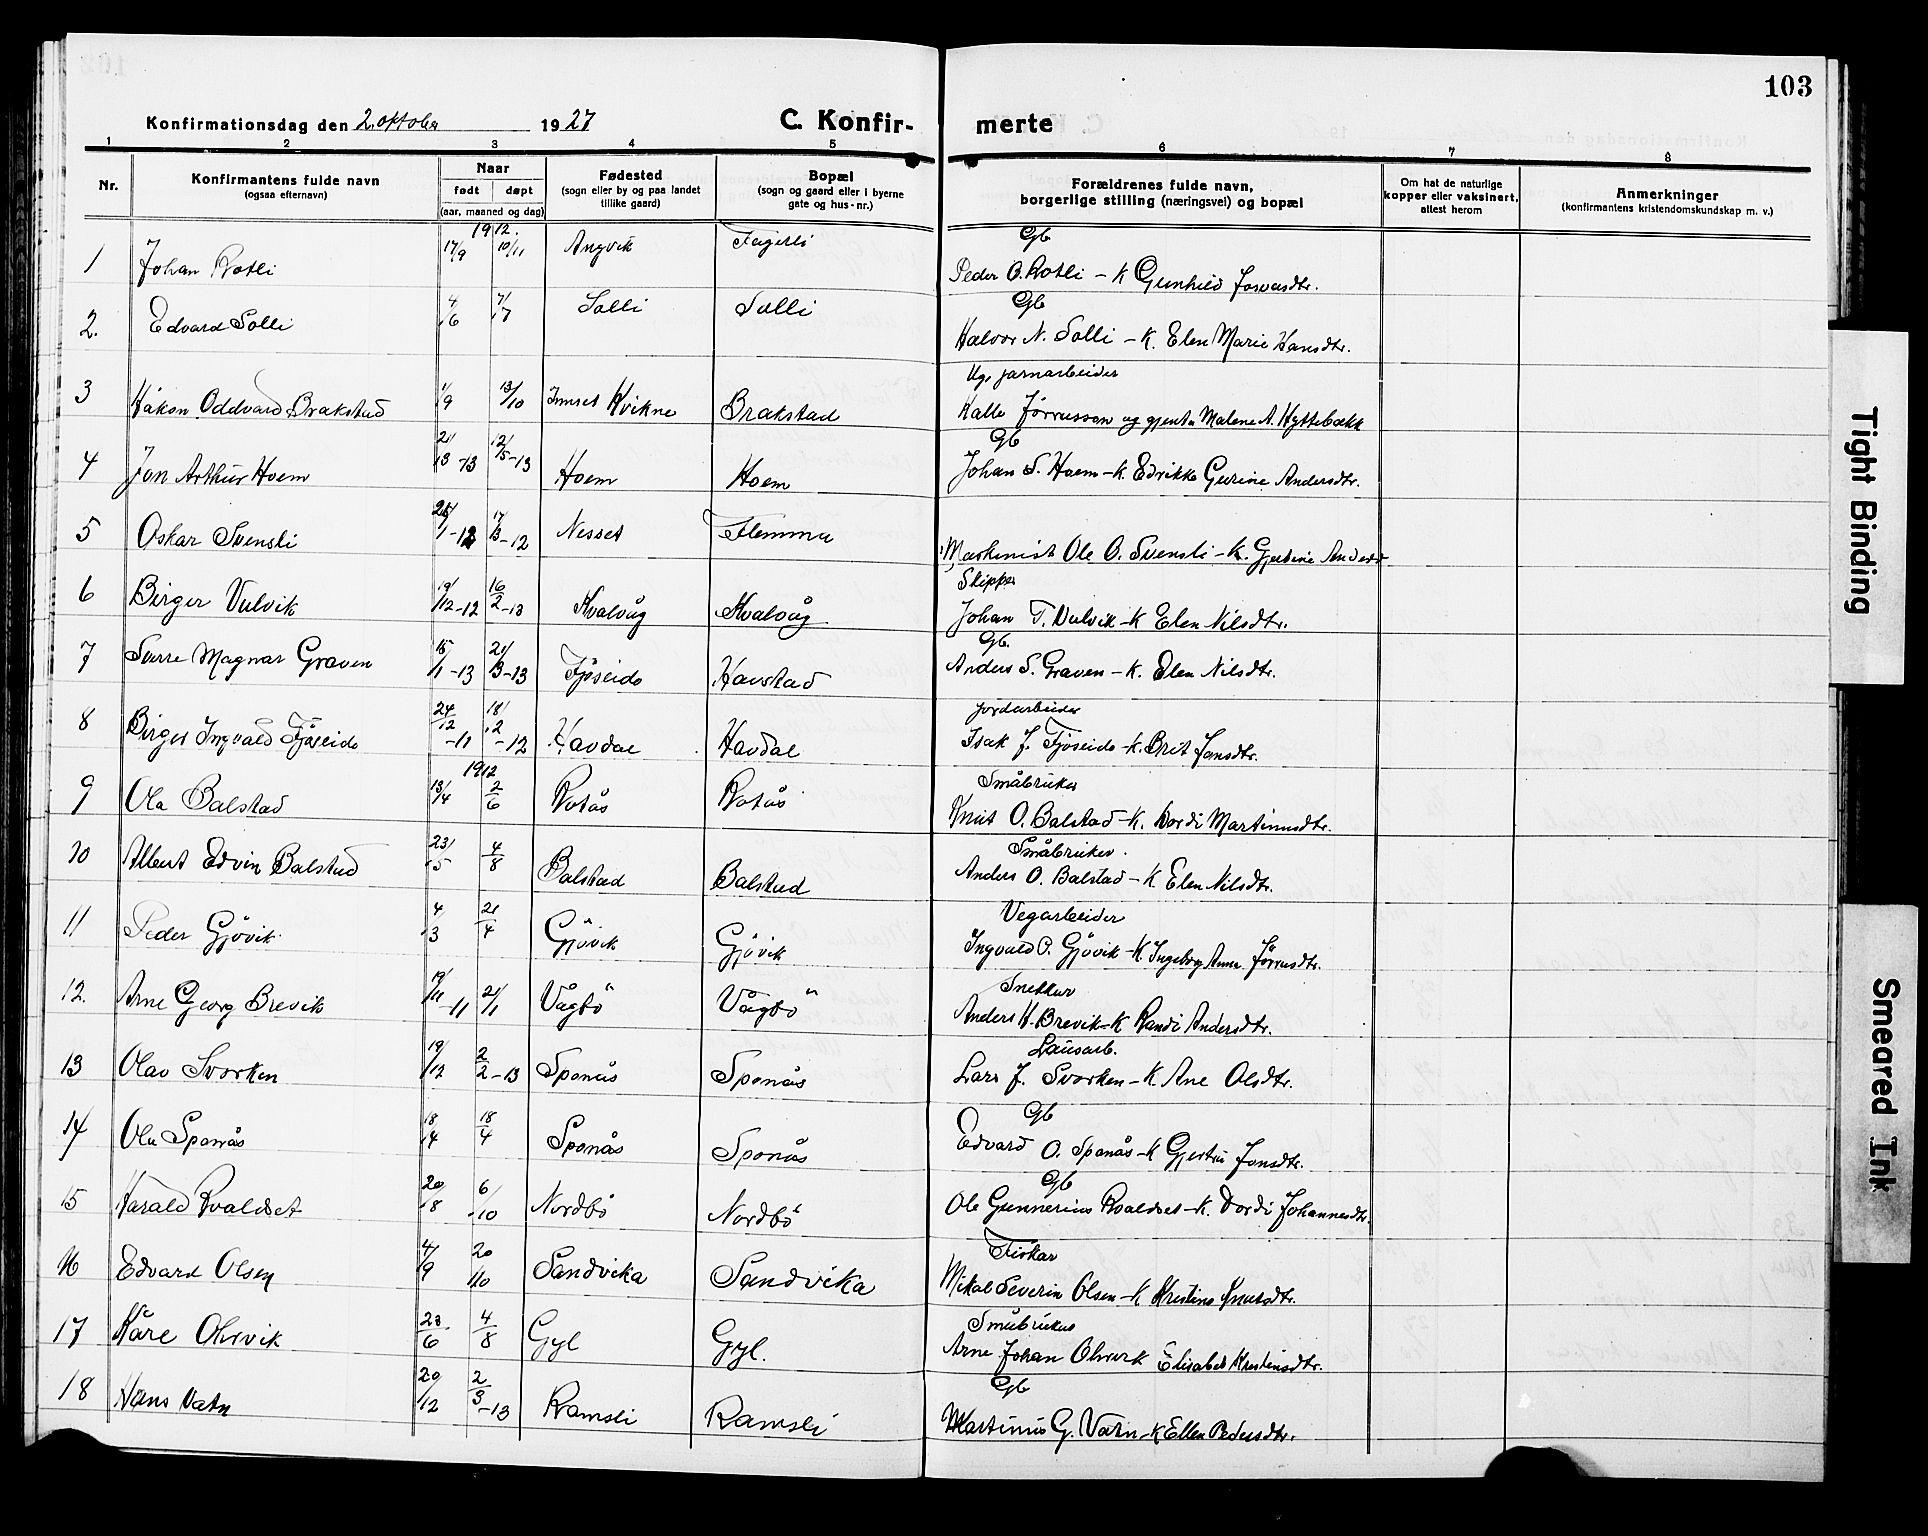 103
Konfirmationsdag den 2. oktober 1927 C. Konfir- merte
1 2 3 4 5 6 7 8
Nr.
Konfirmantens fulde navn
(ogsaa efternavn)
Naar
født døpt
(aar, maaned og dag)
Fødested
(sogn eller by og paa landet
tillike gaard)
Bopæl
(sogn og gaard eller i byerne
gate og hus-nr.)
Forældrenes fulde navn,
borgerlige stilling (næringsvei) og bopæl
Om hat de naturlige
kopper eller vaksinert,
attest herom
Anmerkninger
(konfirmantens kristendomskundskap m. v.)
1912.
Gb
1 Johan Rotli 17/9 10/11 Angvik Fagerli Peder O. Rotli – K Gunhild
Gb
2. Edvard Solli 4/6 7/7 Solli Solli Halvor N. Solli – K. Elen Marie Hansdtr.
Ug. jarnarbeider
3 Håkon Oddvard Brakstad 1/9 13/10 Innset Kvikne Brakstad Kalle og gjenta Malene A. Hyttebakk
Gb
4 Jon Arthur Hoem 21/3-13 12/5-13 Hoem Hoem Johan S. Hoem – K. Edrikke Gurine Andersdtr.
5 Oskar Svensli 1-12 17/3-12 Nesset Flemma Maskinist Ole O. Svensli – K.
Skipper
6 Birger Vulvik 19/12-12 16/2-13 Kvalvåg Kvalvåg Johan T. Vulvik – K Elen Nilsdtr.
Gb.
7 Sverre Magnar Graven 15/1-13 21/3-13 Fjøseide Havstad Anders S. Graven – K. Elen Nilsdtr.
Jordarbeider
8 Birger Ingvald Fjøseide 24/12-11 18/2-12 Havdal Havdal Isak J. Fjøseide – K. Brit Jonsdtr.
1912
Småbruker
9 Ola Balstad 13/4 2/6 Rotås Rotås Knut O. Balstad – K. Dordi Martinusdtr.
Småbruker.
10 Albert Edvin Balstad 23/5 4/8 Balstad Balstad Anders O. Balstad – K Elen Nilsdtr.
Vegarbeider
11 Peder Gjøvik 4/3 21/4 Gjøvik Gjøvik Ingvald P. Gjøvik – K. Ingeborg Anna
Snekker
12. Arne Georg Brevik 19/11-11 21/1 Vågbö Vågbö Anders H. Brevik – K Randi Andersdtr.
Lausarb.
13 Olav Svorken 19/12 2/2-13 Sponås Sponås Lars J. Svorken – K Ane Olsdtr.
Gb
14 Ola Sponås 18/14 18/4 Sponås Sponås Edvard O. Sponås – K Gjertru Jonsdtr.
Gb
15 Harald Roaldset 20/8 6/10 Nordbö Nordbö Ole Gunnerius Roaldset – K. Dordi Johannesdtr.
Fiskar
16 Edvard Olsen 4/9 20/10 Sandvika Sandvika Mikal Severin Olsen – K Kristine Knutsdtr.
Småbruker
17 Kåre Ohrvik 23/6 4/8 Gyl Gyl. Arne Johan Ohrvik Elisabet Kristensdtr.
Gb
18 Hans Vatn 29/12 2/3-13 Ramsli Ramsli Martinus G. Vatn – K Ellen Pedersdtr.
Tight Binding
Smeared Ink